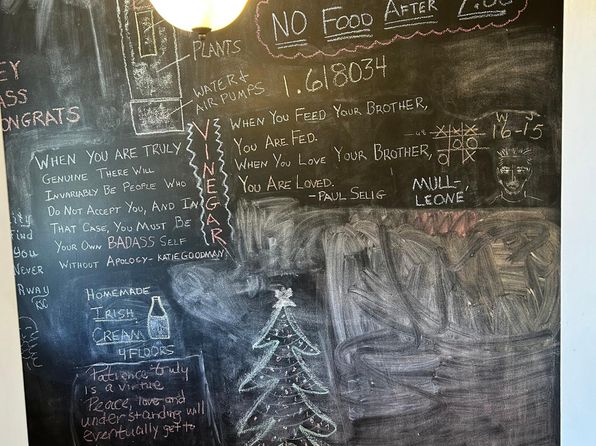 NO FOOD AFTER
PLANTS
WATER &
AIR PUMPS
1.618034
ONGRATS
VINEGAR
WHEN YOU ARE TRULY
GENUINE THERE WILL
INVARIABLY BE PEOPLE WHO
DO NOT ACCEPT YOU, AND IN
THAT CASE, YOU MUST BE
YOUR OWN BADASS SELF
WITHOUT APOLOGY - KATIE GOODMAN
WHEN YOU FEED YOUR BROTHER,
YOU ARE FED.
WHEN YOU LOVE YOUR BROTHER,
YOU ARE LOVED.
- PAUL SELIG
W J
16-15
XXX
OXX
O O
MULL-
LEONE
find
You
Never
Away
HOMEMADE
IRISH
CREAM
4 FLOORS
Patience truly
is a virtue
Peace, love and
understanding will
eventually get to